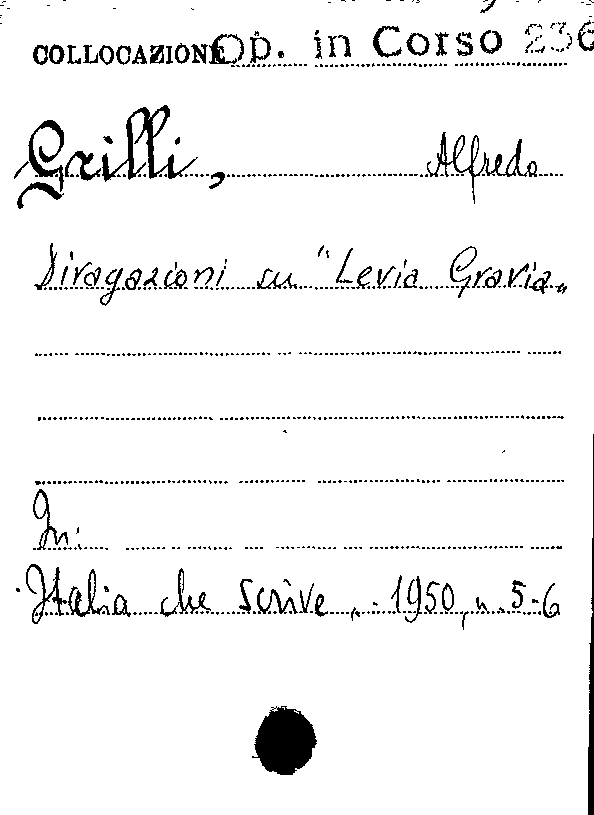 COLLOCAZIONE Op. in Corso 236
Grilli, Alfredo
Divagazioni su "Levia Gravia"
In:
Italia che scrive,, 1950, n. 5-6